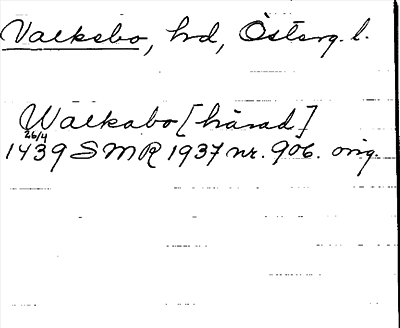 Valkebo, hrd, Österg. l.
Walkabo [härad]
26/4
1439 SMR 1937 nr. 906. orig.